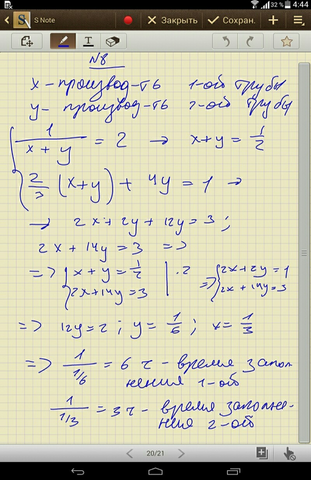 4:44
32 %
S Note
Закрыть
Сохран.
N8
x – производ-ть 1-ой трубы
y – производ-ть 2-ой трубы
1/(x+y) = 2 → x+y = 1/2
2/3 (x+y) + 4y = 1 →
→ 2x+2y+12y=3;
2x+14y=3 =>
=> x+y=1/2 | ·2 => 2x+2y=1
2x+14y=3 2x+14y=3
=> 12y=2; y=1/6; x=1/3
=> 1/(1/6) = 6 ч – время запол-
нения 1-ой
1/(1/3) = 3ч – время заполне-
ния 2-ой
20/21